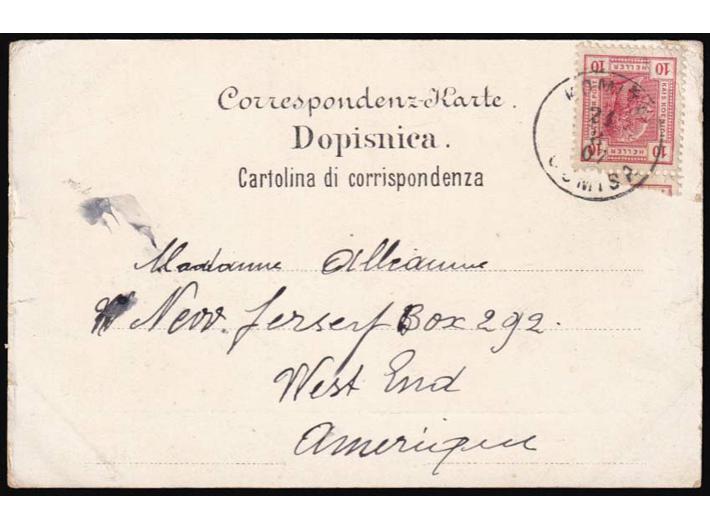 Correspondenz-Karte.
Dopisnica.
Cartolina di corrispondenza
10 HELLER 10
10 HELLER 10
KOMIŽA
21
07
COMISA
Madame
New. Jersey Box 292.
West End
Amerique